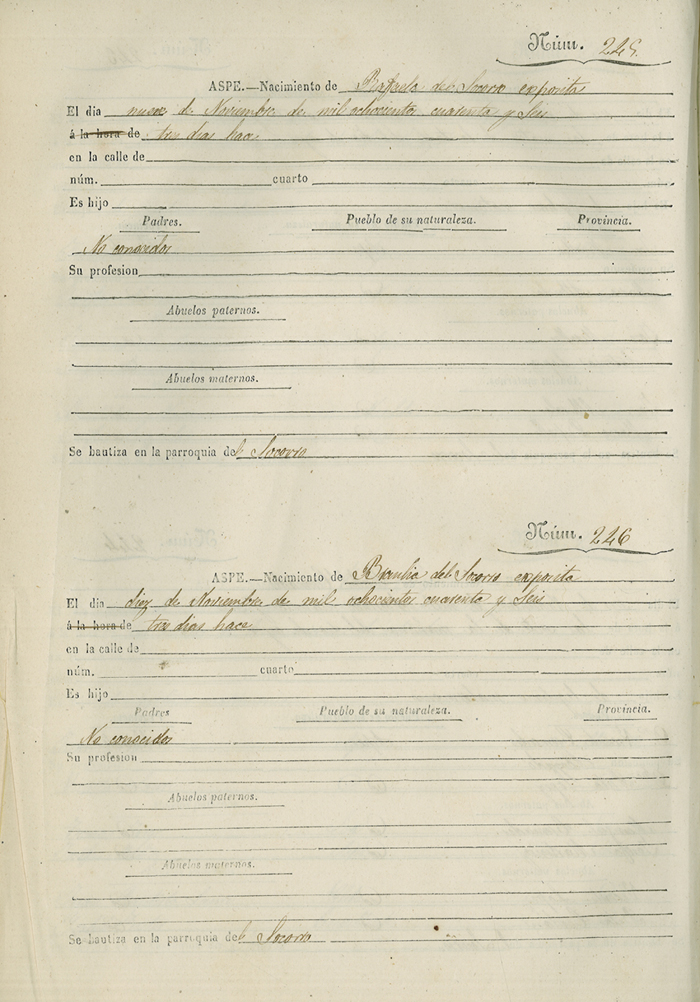 Núm. 225.
ASPE.—Nacimiento de Rafaela del Socorro exposita
El dia nueve de Noviembre de mil ochocientos cuarenta y Seis
á la hora de tres dias hace
en la calle de
núm. cuarto
Es hijo
Padres. Pueblo de su naturaleza. Provincia.
No conocidos
Su profesion
Abuelos paternos.
Abuelos maternos.
Se bautiza en la parroquia del Socorro
Núm. 226
ASPE.—Nacimiento de Braulia del Socorro exposita
El dia diez de Noviembre de mil ochocientos cuarenta y Seis
á la hora de tres dias hace
en la calle de
núm. cuarto
Es hijo
Padres Pueblo de su naturaleza. Provincia.
No conocidos
Su profesion
Abuelos paternos.
Abuelos maternos.
Se bautiza en la parroquia del Socorro